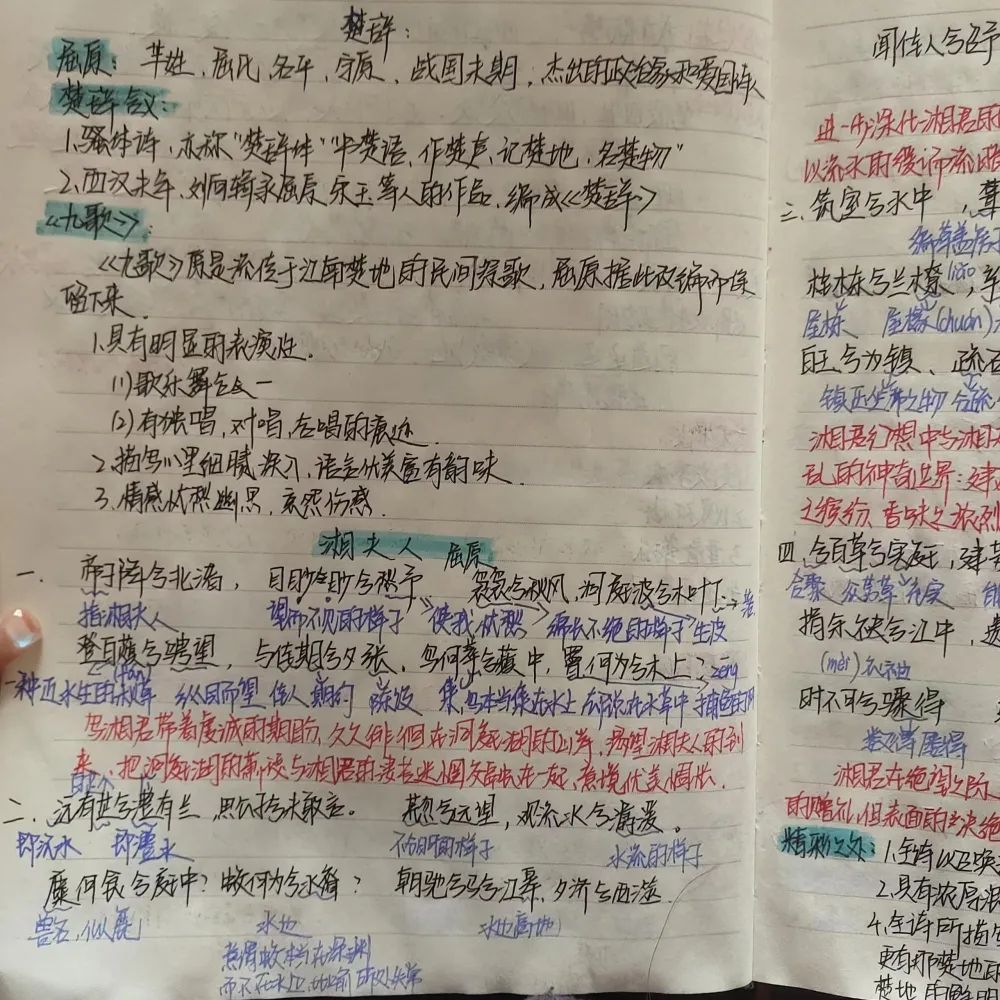 楚辞:
屈原: 芈姓、屈氏、名平、字原,战国末期,杰出的政治家和爱国诗人
楚辞含义:
1.骚体诗,亦称"楚辞体""书楚语,作楚声,记楚地,名楚物"
2.西汉末年,刘向辑录屈原、宋玉等人的作品,编成《楚辞》
《九歌》:
《九歌》原是流传于江南楚地的民间祭歌,屈原据此改编而保
留下来.
1.具有明显的表演性.
(1)歌乐舞合一
(2)有独唱,对唱,合唱的痕迹.
2.描写心里细腻深入,语言优美富有韵味.
3.情感忧愁幽思,哀怨伤感.
湘夫人 屈原
一、帝子降兮北渚,目眇眇兮愁予 袅袅兮秋风,洞庭波兮木叶下.
指湘夫人 望而不见的样子 使我忧愁 绵长不绝的样子 生波 落
登白薠兮骋望,与佳期兮夕张,鸟何萃兮蘋中,罾何为兮木上?zēng
(fán)
一种近水生的秋草 纵目而望 佳人 期约 陈设 集,鸟本当集在水上
写湘君带着虔诚的期盼,久久徘徊在洞庭湖的山岸,渴望湘夫人的到
来,把洞庭湖的
二、沅有茝兮澧有兰,思公子兮未敢言。 荒忽兮远望,观流水兮潺湲。
即沅水 即澧水 不分明的样子 水流的样子
麋何食兮庭中?蛟何为兮水裔? 朝驰余马兮江皋,夕济兮西澨.
兽名,似鹿 水边 水边高地
意谓蛟本当在深渊
而不在水边
闻佳人兮召予
进一步深化湘君的
以流水的缓
三、筑室兮水中,葺
编草盖房
桂栋兮兰橑,辛
lǎo
屋栋 屋椽(chuán)
白玉兮为镇、疏石
镇压坐席之物
湘君幻想中与湘夫
的神奇世界:建
之缤纷、香味之浓烈
四、合百草兮实庭,建芳
合聚 众芳草 充实
捐余袂兮江中,遗
(mèi)衣袖
时不可兮骤得
数得 屡得
湘君在绝望之际
的赠礼,但表面的决绝
精彩之处:1.全诗以召唤
2.具有浓厚浪
4.全诗所描写
更有那楚地的